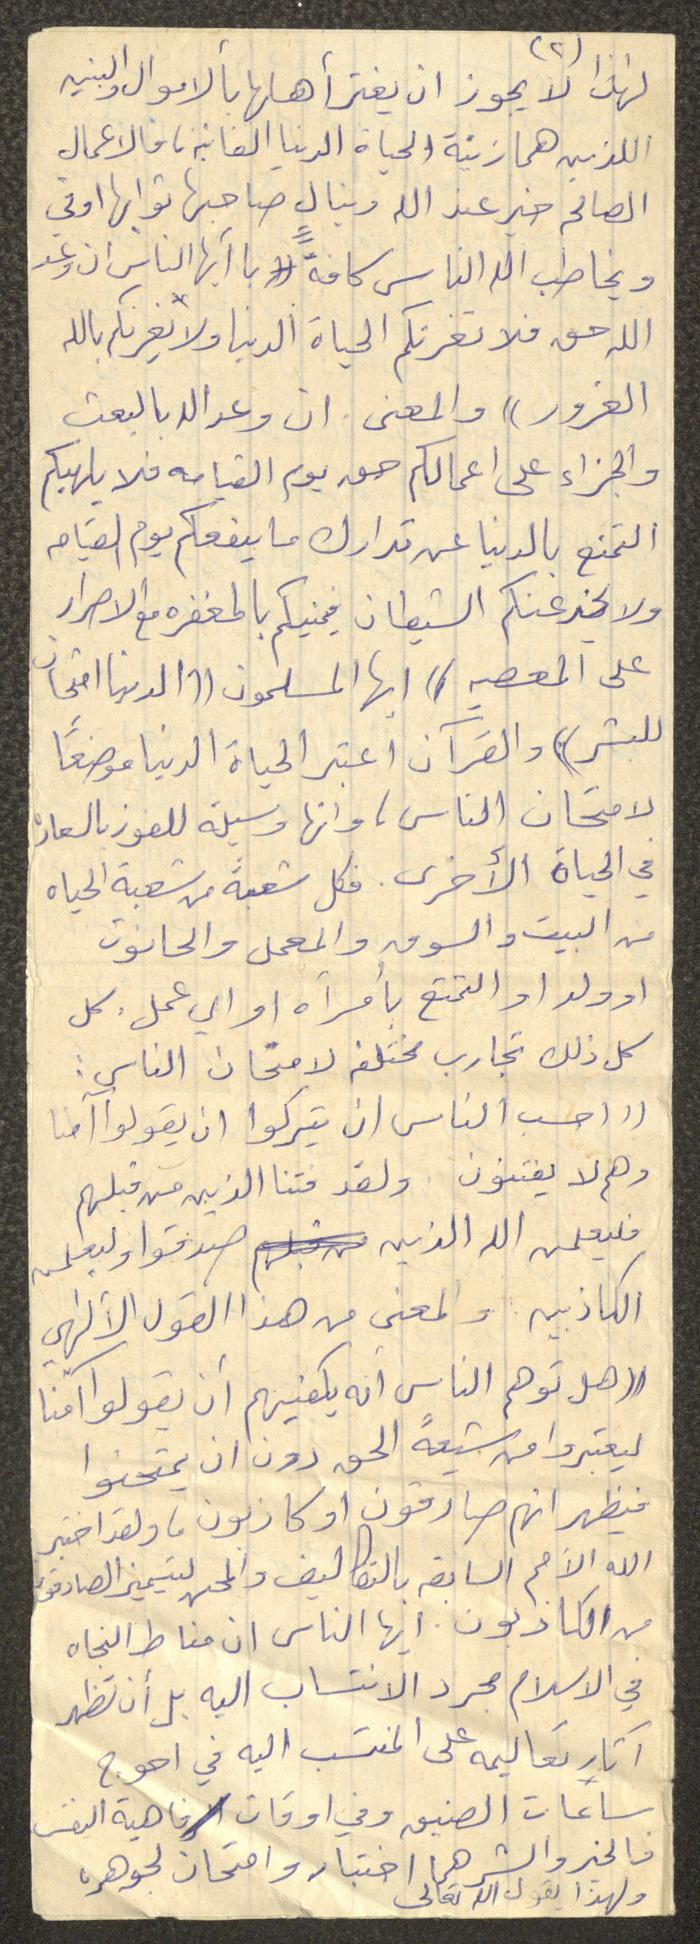 (٢)
لهذا لا يجوز ان يغتر أهلها بألاموال والبنيه
اللذين هما زينة الحياة الدنيا الفانية، فالاعمال
الصالحه خير عند الله وينال صاحبها ثوابها اوفي
ويخاطب الله الناس كافةً (( يا أيها الناس ان وعد
الله حق فلا تغرنكم الحياة الدنيا ولا يغرنكم بالله
الغرور )) والمعنى . ان وعد الله بالبعث
والجزاء على اعمالكم حق يوم القيامه فلا يلهيكم
التمتع بالدنيا عن تدارك ما ينفعكم يوم القيامه
ولا يخدعنكم الشيطان فيمنيكم بالمغفره مع الاصرار
على المعصيه )) ايها المسلمون (( الدنيا امتحان
للبشر )) والقرآن اعتبر الحياة الدنيا موضعًا
لامتحان الناس، وانها وسيلة للفوز بالسعادة
في الحياة الأخرى . فكل شعبةً من شعبة الحياه
من البيت والسوق والمعمل والحانوت
او ولد او التمتع بأمرأه او اي عمل . كل
كل ذلك تجارب مختلفه لامتحان الناس :
(( احسب الناس ان يتركوا ان يقولوا آمنا
وهم لا يفتنون . ولقد فتنا الذين من قبلهم
فليعلمن الله الذين من قبلهم صدقوا وليعلمن
الكاذبين . والمعنى من هذا القول الألهي
(( هل توهم الناس أنه يكفيهم أن يقولوا آمنا
ليعتبروا من شيعةً الحق دون ان يمتحنوا
فيظهر انهم صادقون او كاذبون ، ولقد اختبر
الله الأمم السابقه بالتكاليف والمحن ليتميز الصادقون
من الكاذبون . ايها الناس ان مناط النجاه
في الاسلام مجرد الانتساب اليه بل أن تظهر
آثار تعاليمه على المنتسب اليه في احوج
ساعات الضيق وفي اوقات رفاهية النفس
فالخير والشر هما اختبار وامتحان لجوهره
ولهذا يقول الله تعالى